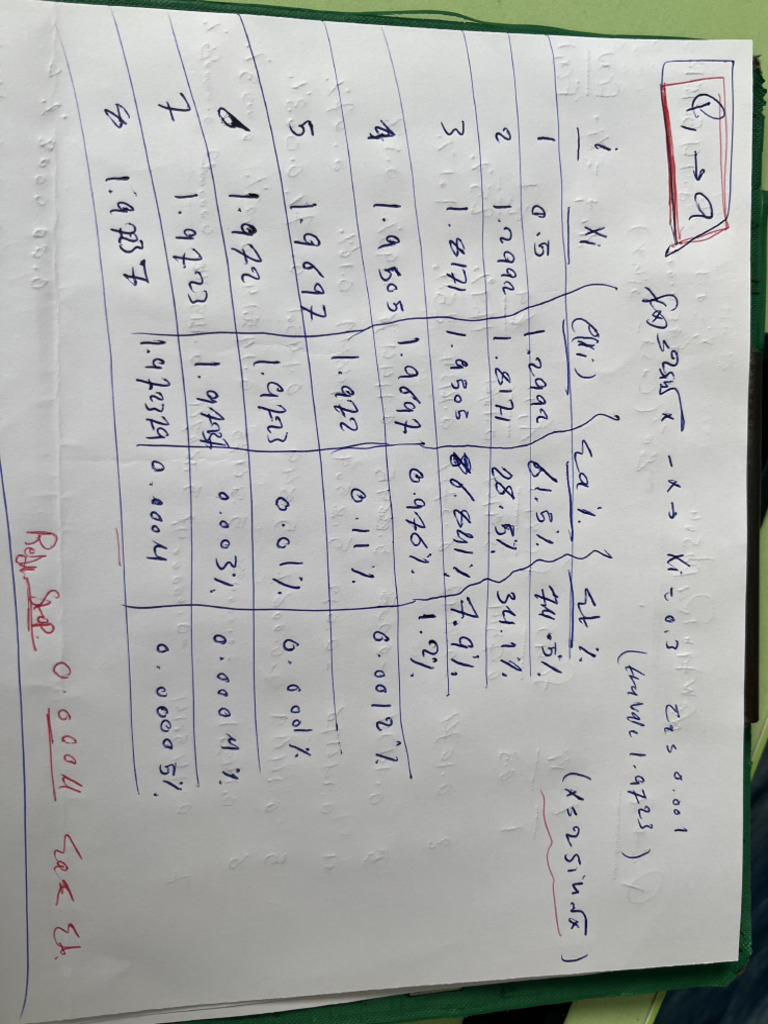 Q1 → a
f(x) = 2sin√x - x → Xi = 0.3 Es 0.001
(true Vale 1.9723)
(x = 2 sin √x)
i Xi P(Xi) Ea % Et %
1 0.5 1.2992 61.5% 74.5%
2 1.2992 1.8171 28.5% 34.1%
3 1.8171 1.9505 6.841% 7.9%
4 1.9505 1.9697 0.976% 1.2%
5 1.9697 1.972 0.11% 0.0012%
6 1.972 1.9723 0.01% 0.001%
7 1.9723 0.003% 0.0004%
8 1.97237 1.972379 0.0004 0.00005%
0.0004 Ea < Et.